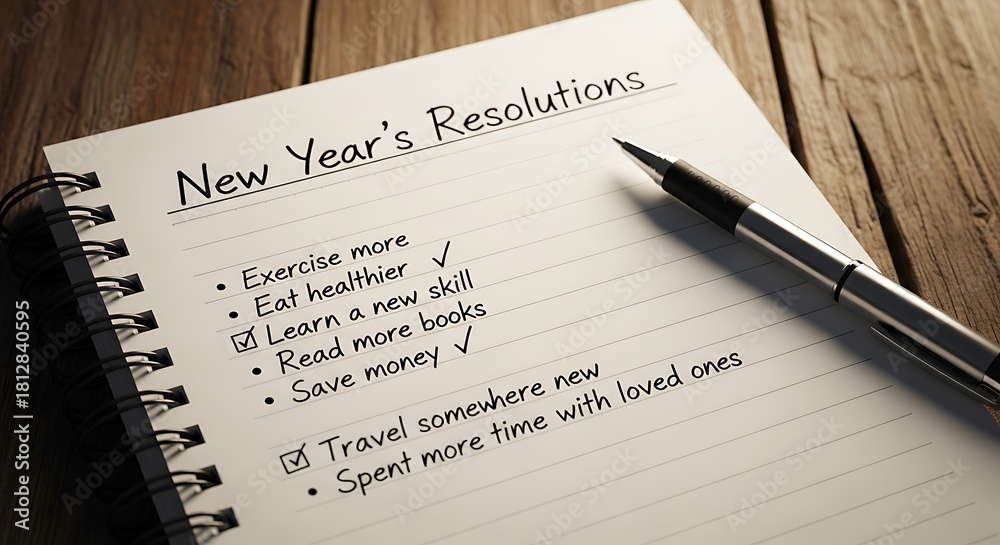 New Year's Resolutions
• Exercise more
• Eat healthier ✓
☑ Learn a new skill
• Read more books
• Save money ✓
☑ Travel somewhere new
• Spent more time with loved ones
Adobe Stock | #1812840595